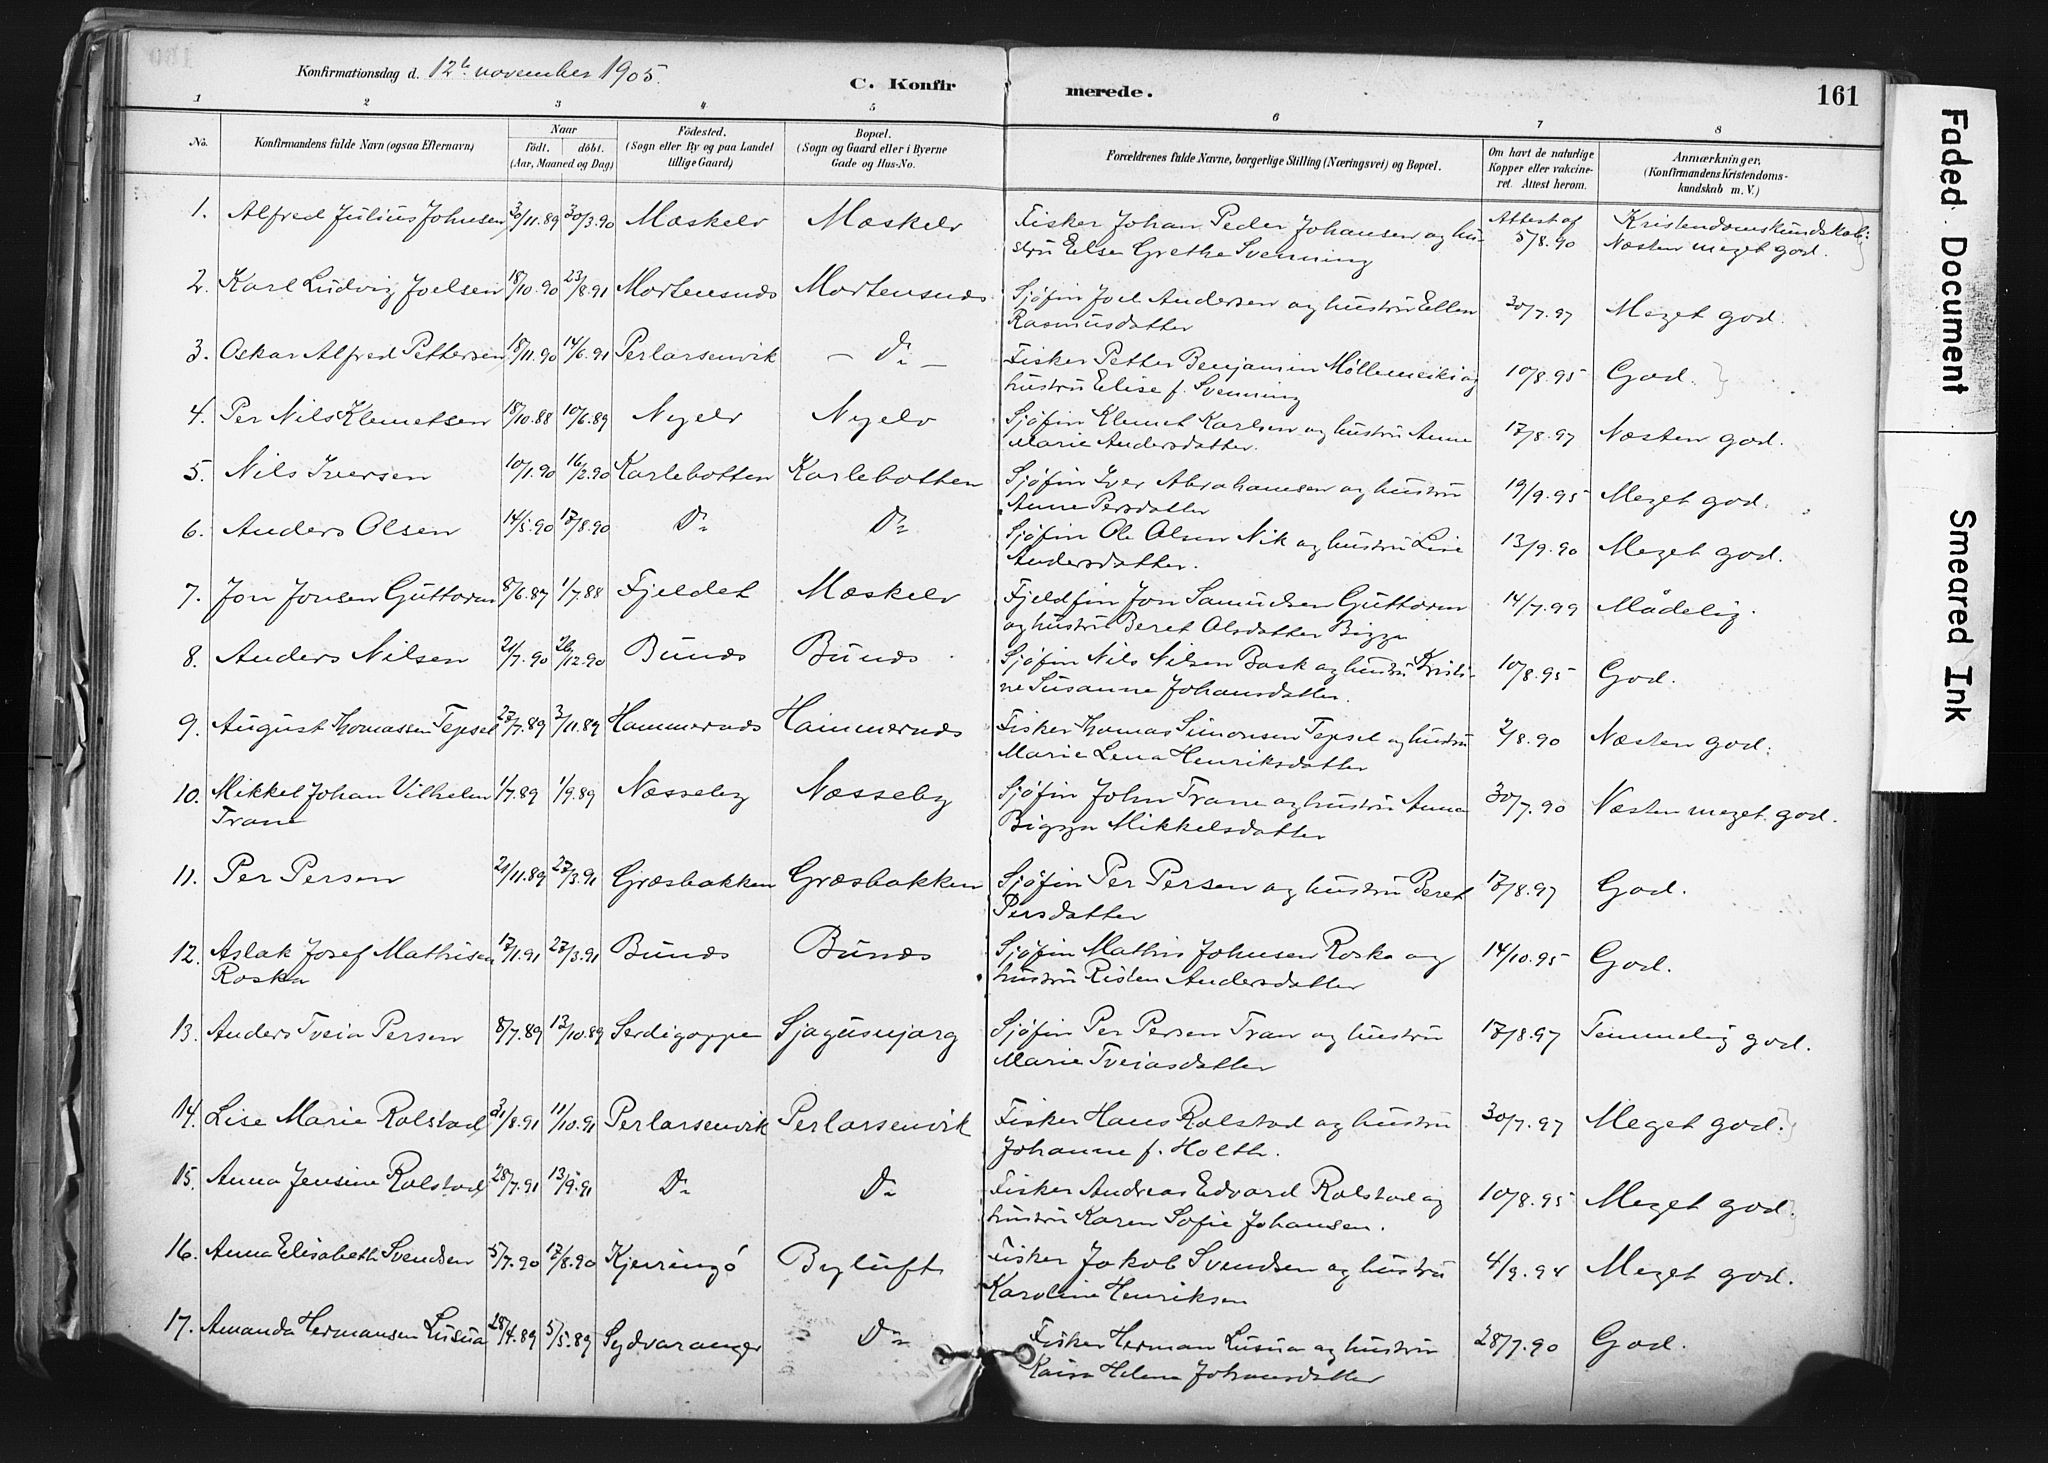 161
Konfirmationsdag d. 12te november 1905.
C. Konfirmerede.
1 2 3 4 5 6 7 8
No. Konfirmandens fulde Navn (ogsaa Efternavn) Naar födt. döbt. (Aar, Maaned og Dag) Födested. (Sogn eller By og paa Landet tillige Gaard) Bopæl. (Sogn og Gaard eller i Byerne Gade og Hus-No. Forældrenes fulde Navne, borgerlige Stilling (Næringsvei) og Bopæl. Om havt de naturlige Kopper eller vakcineret. Attest herom. Anmærkninger. (Konfirmandens Kristendomskundskab m. V.)
1. Alfred Julius Johnsen 30/11.89 30/3.90 Mæskelv Mæskelv Fisker Johan Peder Johansen og hu- Attest af Kristendomskundskab:
stru Else Grethe Svenning 5/8.90 Næsten meget god.
2. Karl Ludvig Joelsen 18/10.90 23/8.91 Mortensnæs Mortensnæs Sjøfin Joel Andersen og hustru Ellen 30/7.97 Meget god.
Rasmusdatter
3. Oskar Alfred Pettersen 18/11.90 14/6.91 Perlarsenvik — Do — Fisker Petter Benjamin og 10/8.95 God.
hustru Elise f. Svenning
4. Per Nils Klemetsen 18/10.88 10/6.89 Nyelv Nyelv Sjøfin Klemet Karlsen og hustru Anne 17/8.97 Næsten god.
Marie Andersdatter.
5. Nils Iversen 10/1.90 16/2.90 Karlebotten Karlebotten Sjøfin Iver Abrahamsen og hustru 19/9.95 Meget god.
Anne Persdatter
6. Anders Olsen 14/5.90 17/8.90 Do Do Sjøfin Ole Olsen Nik og hustru Lise 13/9.90 Meget god.
Andersdatter.
7. Jon Jonsen Guttorm 8/6.87 1/7.88 Fjeldet Mæskelv Fjeldfin Jon Samuelsen Guttorm 14/7.99 Mådelig.
og hustru Beret Olsdatter Bigga
8. Anders Nilsen 21/7.90 26/12.90 Bunæs Bunæs Sjøfin Nils Nilsen Bask og hustru Kristi- 10/8.95 God.
ne Susanne Johansdatter.
9. August Thomassen Tepsel 27/7.89 3/11.89 Hammernæs Hammernæs Fisker Thomas Simonsen Tepsel og hustru 2/8.90 Næsten god.
Marie Lena Henriksdatter
10. Mikkel Johan Vilhelm 1/7.89 1/9.89 Næsseby Næsseby Sjøfin John Trane og hustru Anna 30/7.90 Næsten meget god.
Trane Bigga Mikkelsdatter
11. Per Persen 21/11.89 27/3.91 Græsbakken Græsbakken Sjøfin Per Persen og hustru Beret 17/8.97 God.
Persdatter
12. Aslak Josef Mathisen 17/1.91 27/3.91 Bunæs Bunæs Sjøfin Mathis Johnsen Roska og 14/10.95 God.
Roska hustru Risten Andersdatter
13. Anders Tveia Persen 8/7.89 13/10.89 Serdigoppe Sjagusnjarg Sjøfin Per Persen Tran og hustru 17/8.97 Temmelig god.
Marie Tveiasdatter
14. Lise Marie Rolstad 31/8.91 11/10.91 Perlarsenvik Perlarsenvik Fisker Hans Rolstad og hustru 30/7.97 Meget god.
Johanne f. Holth.
15. Anna Jensine Rolstad 28/7.91 13/9.91 Do Do Fisker Andreas Edvard Rolstad og 10/8.95 Meget god.
hustru Karen Sofie Johansen.
16. Anna Elisabeth Svendsen 5/7.90 17/8.90 Kjerringö Byluft Fisker Jakob Svendsen og hustru 4/9.94 Meget god.
Karoline Henriksen
17. Amanda Hermansen Lusua 28/4.89 5/5.89 Sydvaranger Do Fisker Herman Lusua og hustru 28/7.90 God.
Kaisa Helena Johansdatter
Faded Document
Smeared Ink